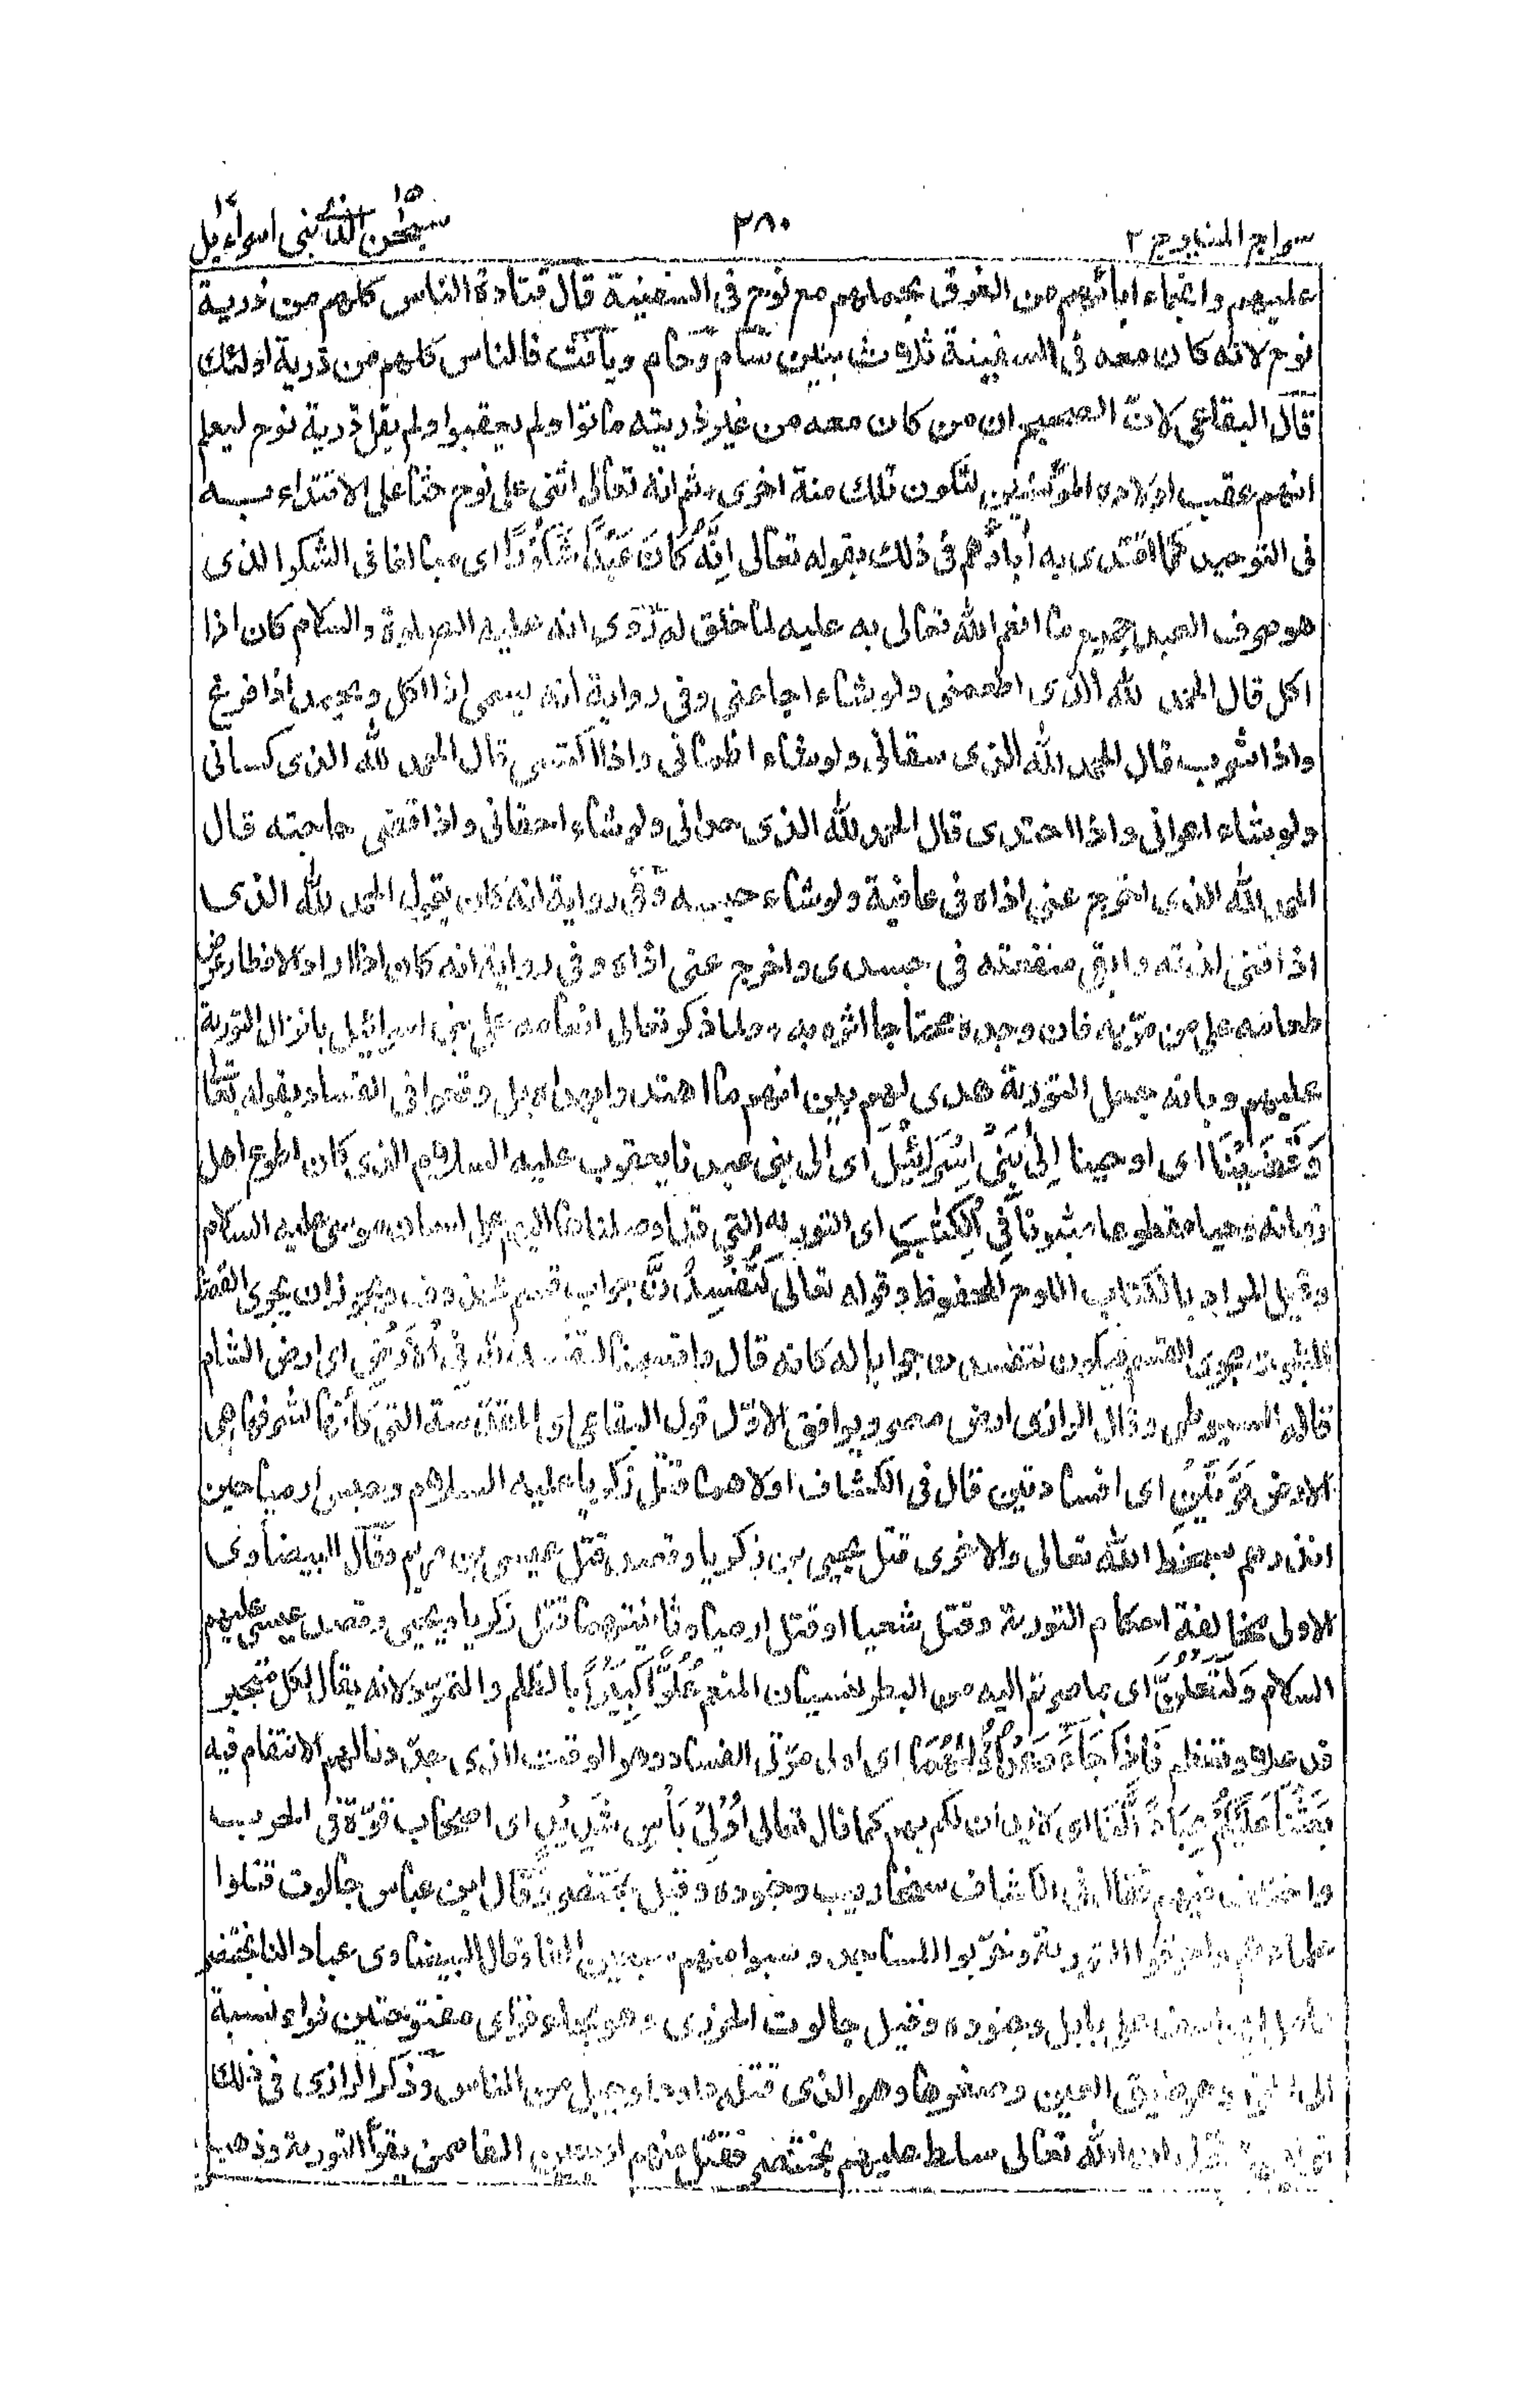 سراج المنير ج ٢
٢٨٠
سبحٰن الذی ١٥ بنی اسرآءیل ١٧
عليهم وانجاء ابائهم من الغرق بحملهم مع نوح فی السفينة قال قتادة الناس كلهم من ذرية
نوح لانه كان معه فی السفينة ثلاث بنين سام وحام ويافث فالناس كلهم من ذرية اولئك
قال البقاعی لانّ الصحيح ان من كان معه من غير ذريته ماتوا ولم يعقبوا ولم يقل ذرية نوح ليعلم
انهم عقب اولاده المؤمنين لتكون تلك منة اخری ثم انه تعالی اثنی علی نوح حثا علی الاقتداء به
فی التوحيد كما اقتدی به أباؤهم فی ذلك بقوله تعالی اِنَّهٗ كَانَ عَبْدًا شَكُوْرًا ای مبالغا فی الشكر الذی
هو صرف العبد جميع ما انعم الله تعالی به عليه لما خلق له رُوی انه عليه الصلوة والسلام كان اذا
اكل قال الحمد لله الذی اطعمنی ولو شاء اجاعنی وفی رواية انه يسمی اذا اكل ويحمد اذا فرغ
واذا شرب قال الحمد لله الذی سقانی ولو شاء اظمأنی واذا اكتسی قال الحمد لله الذی كسانی
ولو شاء اعرانی واذا احتذی قال الحمد لله الذی حذانی ولو شاء احفانی واذا قضی حاجته قال
الحمد لله الذی اخرج عنی اذاه فی عافية ولو شاء حبسه وفی رواية انه كان يقول الحمد لله الذی
اذاقنی لذته وابقی منفعته فی جسدی واخرج عنی اذاه وفی رواية انه كان اذا اراد الافطار عرض
طعامه علی من مرّ به فان وجده محتاجا اثره به ولما ذكر تعالی انعامه علی بنی اسرائيل بانزال التورية
عليهم وبانه جعل التورية هدی لهم بين انهم ما اهتدوا بهداه بل وقعوا فی الفساد بقوله تعا
وَقَضَيْنَا ای اوحينا اِلٰی بَنِیْ اِسْرَآئِيْلَ ای الی بنی عبدنا يعقوب عليه السلام الذی كان اطوع اهل
زمانه وحيا مقطوعا مبثوتا فِی الْكِتٰبِ ای التورية التی قد اوصلناها اليهم علی لسان موسی عليه السلام
وقيل المراد بالكتاب اللوح المحفوظ وقوله تعالی لَتُفْسِدُنَّ جواب قسم محذوف ويجوز ان يجری القضا
مجری القسم فيكون لتفسدن جوابا له كانه قال واقسمنا لتفسدن فِی الْاَرْضِ ای ارض الشام
قاله السيوطی وقال الرازی ارض مصر ويوافق الاوّل قول البقاعی ای المقدّسة التی كأنها لشرفها هی
الارض مَرَّتَيْنِ ای افسادتين قال فی الكشاف اولاهما قتل زكريا عليه السلام وحبس ارميا حين
انذرهم سخط الله تعالی والاخری قتل يحيی بن زكريا وقصد قتل عيسی بن مريم وقال البيضاوی
الاولی مخالفة احكام التورية وقتل شعيا او قتل ارميا وثانيتهما قتل زكريا ويحيی وقصد عيسی عليهم
السلام وَلَتَعْلُنَّ ای بما صرتم اليه من البطر لنسيان المنعم عُلُوًّا كَبِيْرًا بالظلم والتمرّد لانه يقال لكل متجبر
قد علا وتعظم فَاِذَا جَآءَ وَعْدُ اُوْلٰىهُمَا ای اولی مرّتی الفساد وهو الوقت الذی حدّ ونالهم الانتقام فيه
بَعَثْنَا عَلَيْكُمْ عِبَادًا لَّنَا ای لا يدان لكم بهم كما قال تعالی اُوْلِیْ بَاْسٍ شَدِيْدٍ ای اصحاب قوّة فی الحرب
واختلف فيهم فقال فی الكشاف سنحاريب وجنوده وقيل بختنصر وقال ابن عباس جالوت قتلوا
علماءهم واحرقوا التورية وخرّبوا المساجد وسبوا منهم سبعين الفا وقال البيضاوی عبادا لنا بختنصر
عامل لهراسف علی بابل وجنوده وقيل جالوت الخزری وهو بخاء وزای مفتوحتين فراء نسبة
الی وهو ضيق العين وصغرها وهو الذی قتله داود وجيل من الناس وذكر الرازی فی ذلك
ان الله تعالی سلط عليهم بختنصر فقتل منهم اربعين الفا ممن يقرأ التورية وذهب